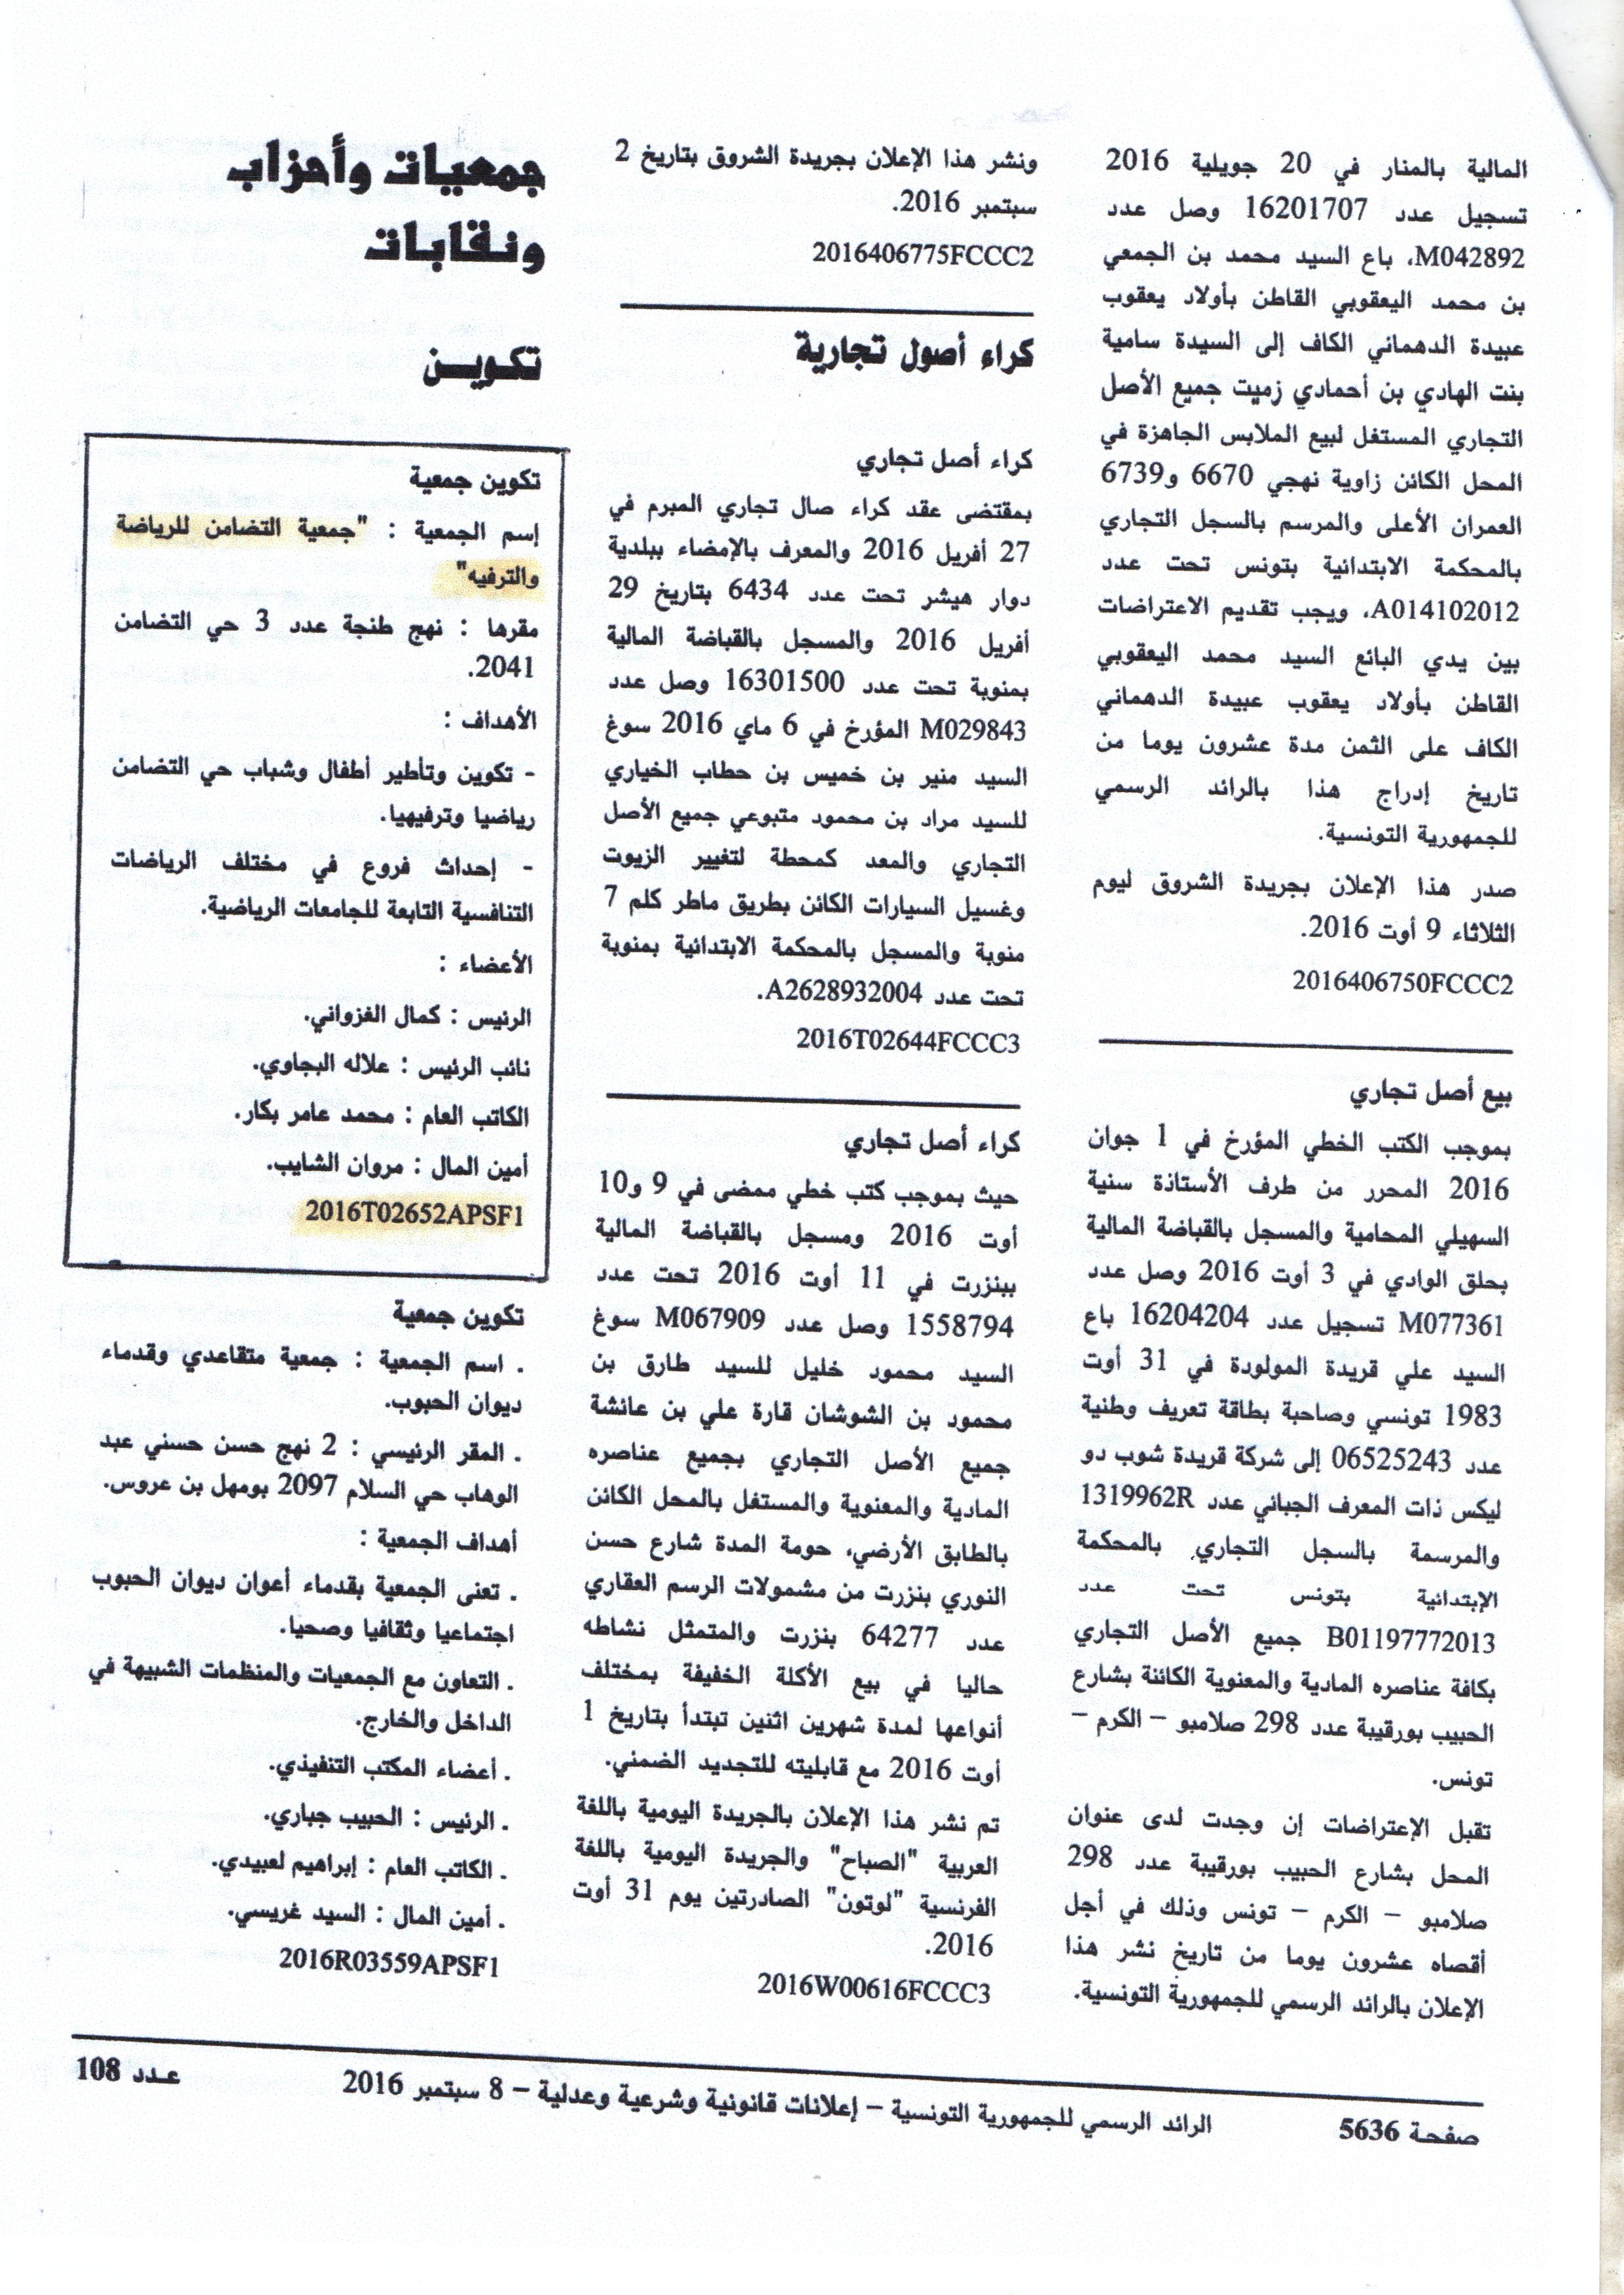 المالية بالمنار في 20 جويلية 2016
تسجيل عدد 16201707 وصل عدد
M042892، باع السيد محمد بن الجمعي
بن محمد اليعقوبي القاطن بأولاد يعقوب
عبيدة الدهماني الكاف إلى السيدة سامية
بنت الهادي بن أحمادي زميت جميع الأصل
التجاري المستغل لبيع الملابس الجاهزة في
المحل الكائن زاوية نهجي 6670 و6739
العمران الأعلى والمرسم بالسجل التجاري
بالمحكمة الابتدائية بتونس تحت عدد
A014102012، ويجب تقديم الاعتراضات
بين يدي البائع السيد محمد اليعقوبي
القاطن بأولاد يعقوب عبيدة الدهماني
الكاف على الثمن مدة عشرون يوما من
تاريخ إدراج هذا بالرائد الرسمي
للجمهورية التونسية.
صدر هذا الإعلان بجريدة الشروق ليوم
الثلاثاء 9 أوت 2016.
2016406750FCCC2
بيع أصل تجاري
بموجب الكتب الخطي المؤرخ في 1 جوان
2016 المحرر من طرف الأستاذة سنية
السهيلي المحامية والمسجل بالقباضة المالية
بحلق الوادي في 3 أوت 2016 وصل عدد
M077361 تسجيل عدد 16204204 باع
السيد علي قريدة المولودة في 31 أوت
1983 تونسي وصاحبة بطاقة تعريف وطنية
عدد 06525243 إلى شركة قريدة شوب دو
ليكس ذات المعرف الجبائي عدد 1319962R
والمرسمة بالسجل التجاري بالمحكمة
الإبتدائية بتونس تحت عدد
B01197772013 جميع الأصل التجاري
بكافة عناصره المادية والمعنوية الكائنة بشارع
الحبيب بورقيبة عدد 298 صلامبو – الكرم –
تونس.
تقبل الإعتراضات إن وجدت لدى عنوان
المحل بشارع الحبيب بورقيبة عدد 298
صلامبو – الكرم – تونس وذلك في أجل
أقصاه عشرون يوما من تاريخ نشر هذا
الإعلان بالرائد الرسمي للجمهورية التونسية.
ونشر هذا الإعلان بجريدة الشروق بتاريخ 2
سبتمبر 2016.
2016406775FCCC2
كراء أصول تجارية
كراء أصل تجاري
بمقتضى عقد كراء صال تجاري المبرم في
27 أفريل 2016 والمعرف بالإمضاء ببلدية
دوار هيشر تحت عدد 6434 بتاريخ 29
أفريل 2016 والمسجل بالقباضة المالية
بمنوبة تحت عدد 16301500 وصل عدد
M029843 المؤرخ في 6 ماي 2016 سوغ
السيد منير بن خميس بن حطاب الخياري
للسيد مراد بن محمود متبوعي جميع الأصل
التجاري والمعد كمحطة لتغيير الزيوت
وغسيل السيارات الكائن بطريق ماطر كلم 7
منوبة والمسجل بالمحكمة الابتدائية بمنوبة
تحت عدد A2628932004.
2016T02644FCCC3
كراء أصل تجاري
حيث بموجب كتب خطي ممضى في 9 و10
أوت 2016 ومسجل بالقباضة المالية
ببنزرت في 11 أوت 2016 تحت عدد
1558794 وصل عدد M067909 سوغ
السيد محمود خليل للسيد طارق بن
محمود بن الشوشان قارة علي بن عائشة
جميع الأصل التجاري بجميع عناصره
المادية والمعنوية والمستغل بالمحل الكائن
بالطابق الأرضي، حومة المدة شارع حسن
النوري بنزرت من مشمولات الرسم العقاري
عدد 64277 بنزرت والمتمثل نشاطه
حاليا في بيع الأكلة الخفيفة بمختلف
أنواعها لمدة شهرين اثنين تبتدأ بتاريخ 1
أوت 2016 مع قابليته للتجديد الضمني.
تم نشر هذا الإعلان بالجريدة اليومية باللغة
العربية "الصباح" والجريدة اليومية باللغة
الفرنسية "لوتون" الصادرتين يوم 31 أوت
2016.
2016W00616FCCC3
جمعيات وأحزاب
ونقابات
تكويـن
تكوين جمعية
إسم الجمعية : "جمعية التضامن للرياضة
والترفيه"
مقرها : نهج طنجة عدد 3 حي التضامن
2041.
الأهداف :
- تكوين وتأطير أطفال وشباب حي التضامن
رياضيا وترفيهيا.
- إحداث فروع في مختلف الرياضات
التنافسية التابعة للجامعات الرياضية.
الأعضاء :
الرئيس : كمال الغزواني.
نائب الرئيس : علاله البجاوي.
الكاتب العام : محمد عامر بكار.
أمين المال : مروان الشايب.
2016T02652APSF1
تكوين جمعية
. اسم الجمعية : جمعية متقاعدي وقدماء
ديوان الحبوب.
. المقر الرئيسي : 2 نهج حسن حسني عبد
الوهاب حي السلام 2097 بومهل بن عروس.
أهداف الجمعية :
. تعنى الجمعية بقدماء أعوان ديوان الحبوب
اجتماعيا وثقافيا وصحيا.
. التعاون مع الجمعيات والمنظمات الشبيهة في
الداخل والخارج.
. أعضاء المكتب التنفيذي.
. الرئيس : الحبيب جباري.
. الكاتب العام : إبراهيم لعبيدي.
. أمين المال : السيد غريسي.
2016R03559APSF1
صفحة 5636
الرائد الرسمي للجمهورية التونسية – إعلانات قانونية وشرعية وعدلية – 8 سبتمبر 2016
عـدد 108